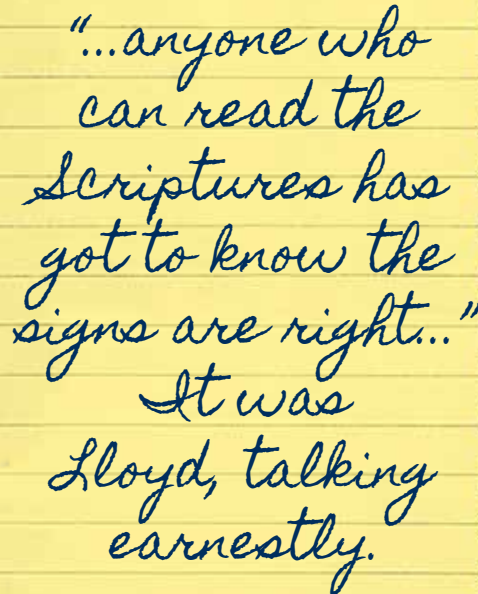 "...anyone who
can read the
Scriptures has
got to know the
signs are right..."
It was
Lloyd, talking
earnestly.